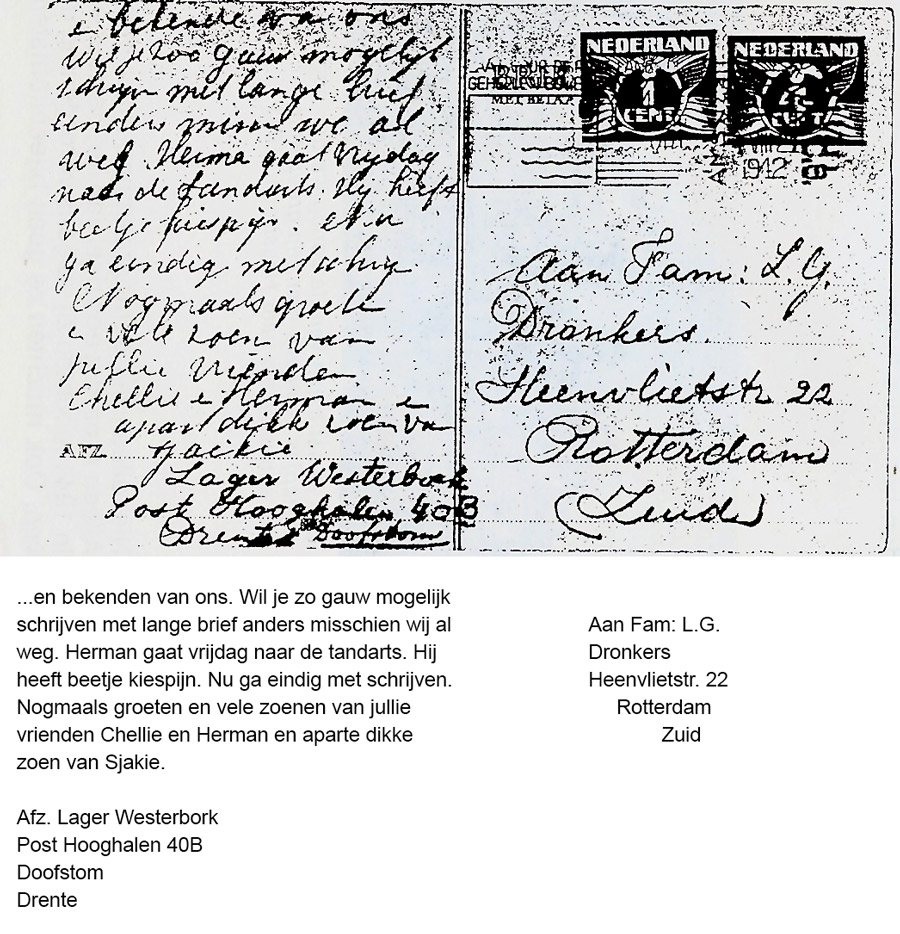 e bekende va ons
wil je zoo gauw mogelijk
schrijn met lange brief
anders misn we al
weg Herma gaat Vrijdag
naar de tandarts. Hij heeft
beetje kiespijn. Nu
ga eindig met schrijv
Nogmaals groete
e vele zoen van
jullie vrienden
Chellie e Herman e
apart dikke zoen va
AFZ. Sjaikie
Lager Westerbork
Post Hooghalen 40B
Drente Doofstom
NEDERLAND
1
CENT
NEDERLAND
CENT
MET BETAA
1942
Aan Fam: L.G.
Dronkers.
Heenvlietstr 22
Rotterdam
(Zuid)
...en bekenden van ons. Wil je zo gauw mogelijk
schrijven met lange brief anders misschien wij al
weg. Herman gaat vrijdag naar de tandarts. Hij
heeft beetje kiespijn. Nu ga eindig met schrijven.
Nogmaals groeten en vele zoenen van jullie
vrienden Chellie en Herman en aparte dikke
zoen van Sjakie.
Afz. Lager Westerbork
Post Hooghalen 40B
Doofstom
Drente
Aan Fam: L.G.
Dronkers
Heenvlietstr. 22
Rotterdam
Zuid